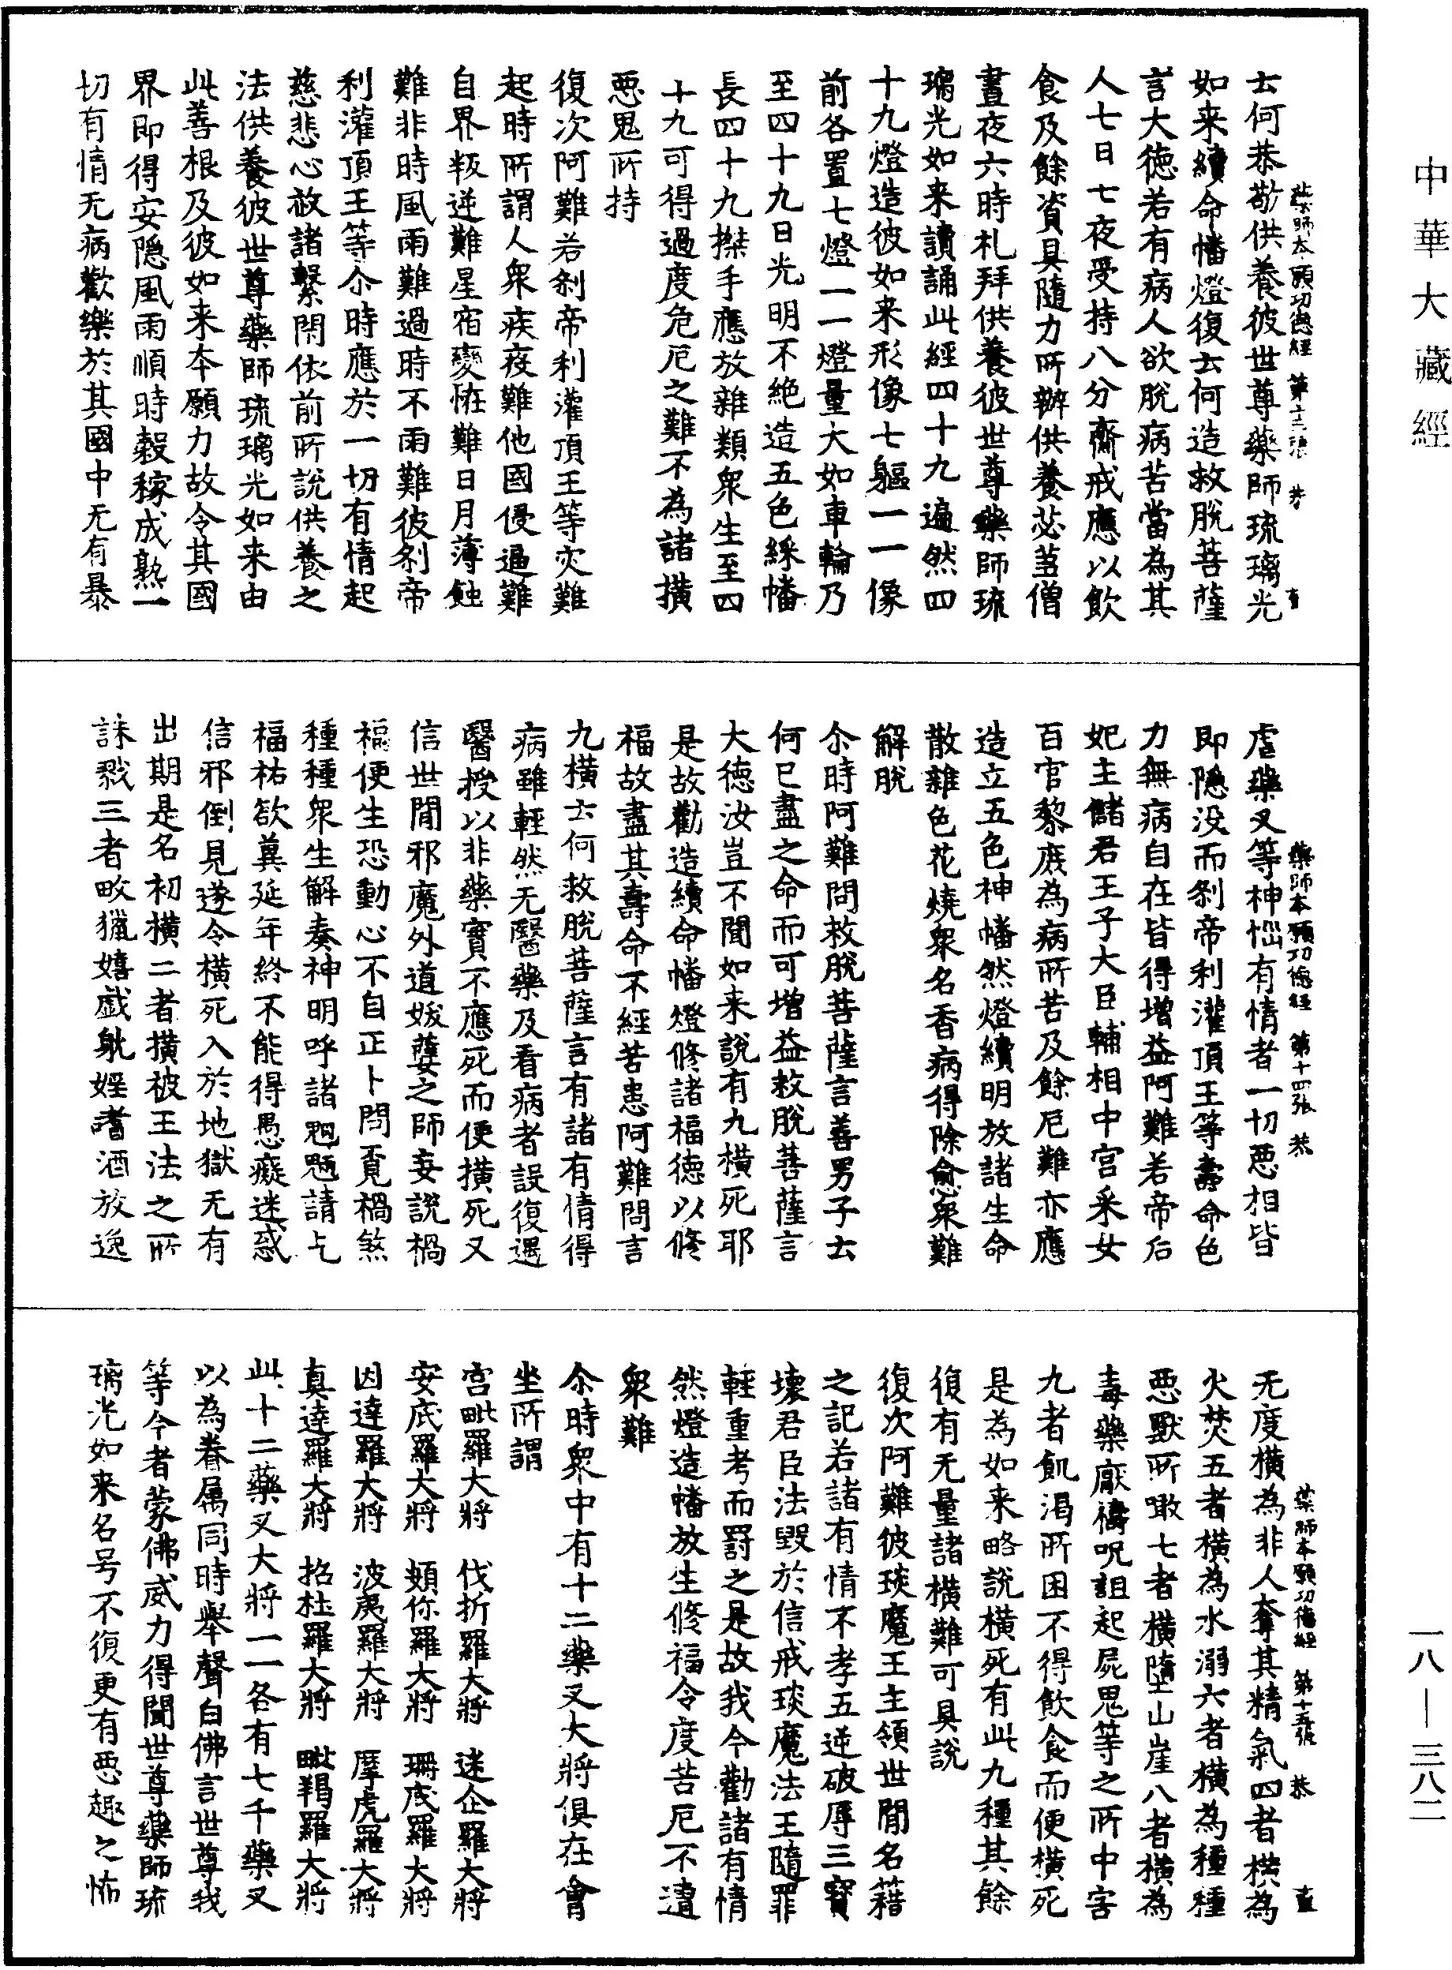 中華大藏經
藥師本願功德經　第十三張　恭
云何恭敬供養彼世尊藥師琉璃光
如来續命幡燈復云何造救脫菩薩
言大徳若有病人欲脫病苦當為其
人七日七夜受持八分齋戒應以飲
食及餘資具隨力所辦供養苾芻僧
晝夜六時礼拜供養彼世尊藥師琉
璃光如来讀誦此經四十九遍然四
十九燈造彼如来形像七軀一一像
前各置七燈一一燈量大如車輪乃
至四十九日光明不絕造五色綵幡
長四十九搩手應放雜類衆生至四
十九可得過度危厄之難不為諸横
惡鬼所持
復次阿難若剎帝利灌頂王等灾難
起時所謂人衆疾疫難他國侵逼難
自界叛逆難星宿變恠難日月薄蝕
難非時風雨難過時不雨難彼剎帝
利灌頂王等尒時應於一切有情起
慈悲心赦諸繫閇依前所說供養之
法供養彼世尊藥師琉璃光如来由
此善根及彼如来本願力故令其國
界即得安隠風雨順時穀稼成熟一
切有情无病歡樂於其國中无有暴
藥師本願功德經　第十四張　恭
虐藥叉等神惱有情者一切惡相皆
即隠没而剎帝利灌頂王等壽命色
力無病自在皆得增益阿難若帝后
妃主儲君王子大臣輔相中宮采女
百官黎庶為病所苦及餘厄難亦應
造立五色神幡然燈續明放諸生命
散雜色花燒衆名香病得除愈衆難
解脫
尒時阿難問救脫菩薩言善男子云
何已盡之命而可增益救脫菩薩言
大徳汝豈不聞如来說有九橫死耶
是故勸造續命幡燈修諸福德以修
福故盡其壽命不經苦患阿難問言
九橫云何救脫菩薩言有諸有情得
病雖輕然无醫藥及看病者設復遇
醫授以非藥實不應死而便横死又
信世間邪魔外道妖孽之師妄說禍
福便生恐動心不自正卜問覓禍煞
種種衆生解奏神明呼諸魍魎請乞
福祐欲冀延年終不能得愚癡迷惑
信邪倒見遂令橫死入於地獄无有
出期是名初橫二者横被王法之所
誅戮三者畋獵嬉戲躭婬嗜酒放逸
藥師本願功德經　第十五張　恭
无度橫為非人奪其精氣四者横為
火焚五者橫為水溺六者橫為種種
惡獸所噉七者橫墮山崖八者橫為
毒藥厭禱呪詛起屍鬼等之所中害
九者飢渴所困不得飲食而便橫死
是為如来略說横死有此九種其餘
復有无量諸橫難可具說
復次阿難彼琰魔王主領世間名藉
之記若諸有情不孝五逆破辱三寶
壊君臣法毀於信戒琰魔法王隨罪
輕重考而罸之是故我今勸諸有情
然燈造幡放生修福令度苦厄不遭
衆難
尒時衆中有十二藥叉大將俱在會
坐所謂
宮毗羅大將　伐折羅大將　迷企羅大將
安底羅大將　頞你羅大將　珊底羅大將
因達羅大將　波夷羅大將　摩虎羅大將
真達羅大將　招杜羅大將　毗羯羅大將
此十二藥叉大將一一各有七千藥叉
以為眷属同時舉聲白佛言世尊我
等今者蒙佛威力得聞世尊藥師琉
璃光如来名号不復更有惡趣之怖
一八—三八二